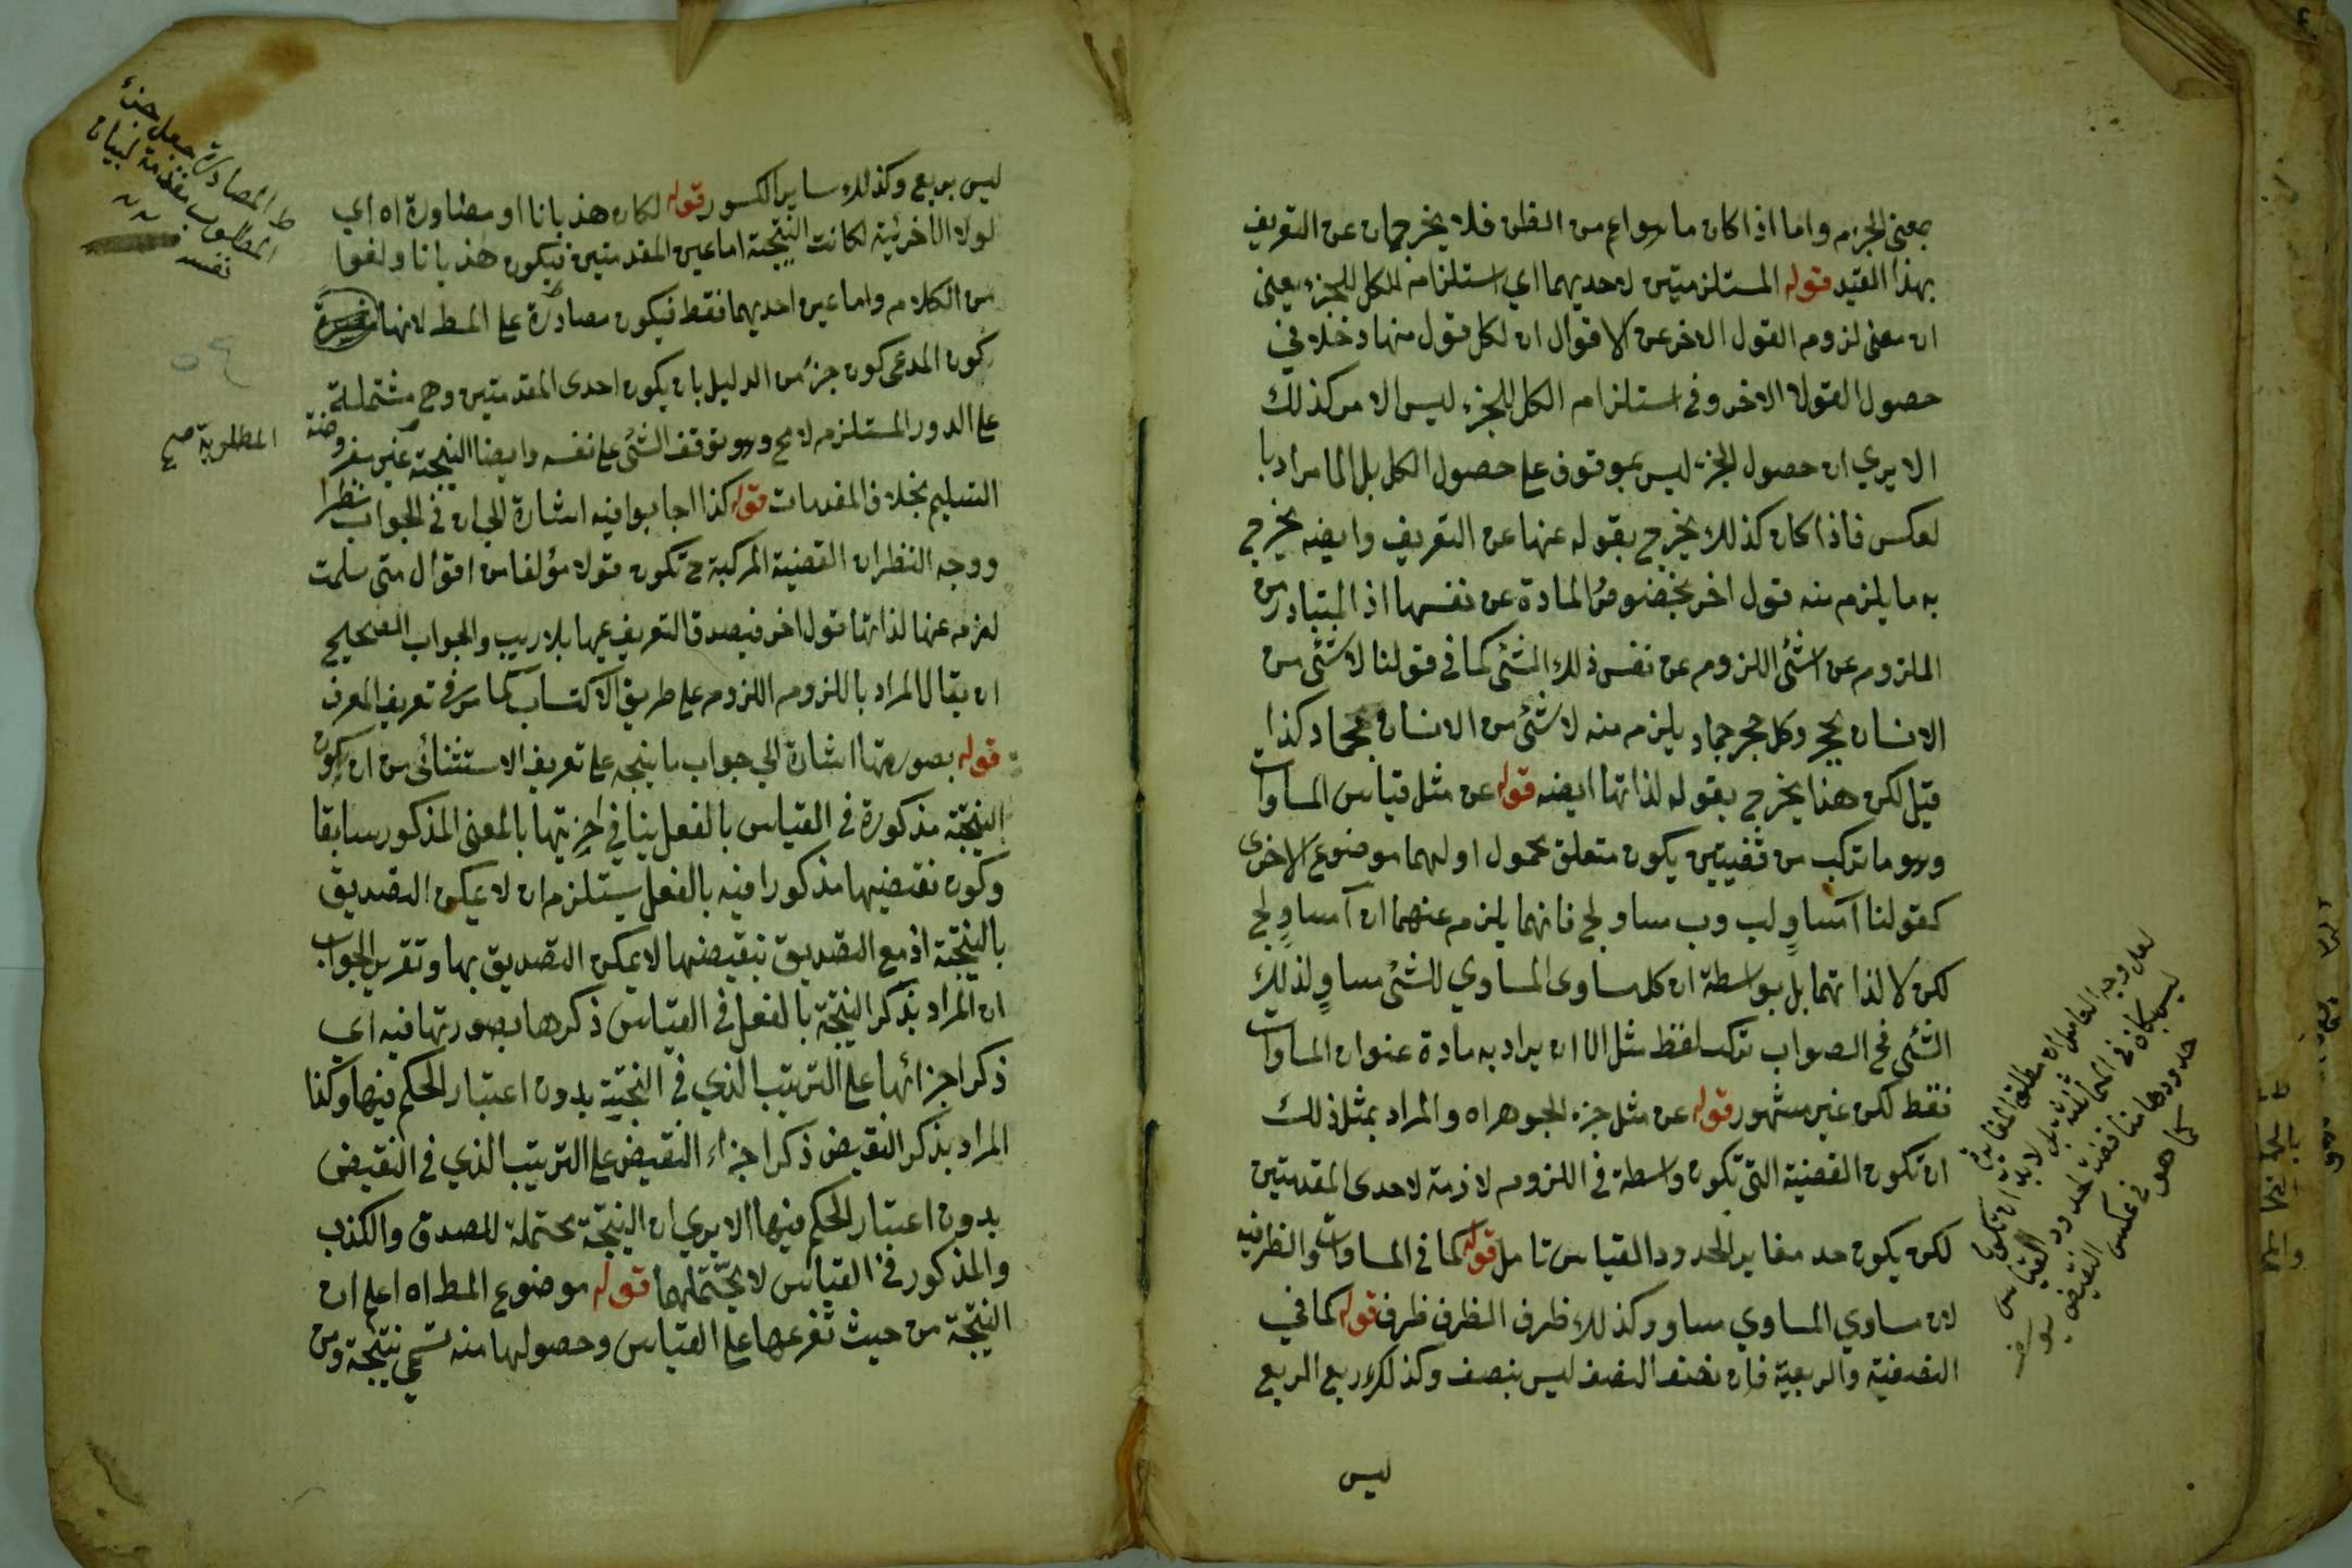 بمعنى الجزم واما اذا كان ما هو اعم من الظن فلا يخرجان عن التعريف
بهذا القيد قوله المستلزمتين لاحديهما اي استلزام الكل للجزء يعني
ان معنى لزوم القول الاخر عن الاقوال ان لكل قول منها دخلا في
حصول القول الاخر وفي استلزام الكل للجزء ليس الامر كذلك
الا يري ان حصول الجزء ليس بموقوف على حصول الكل بل الامر با
لعكس فاذا كان كذلك يخرج بقوله عنها عن التعريف وايضه يخرج
به ما يلزم منه قول اخر بخصوص المادة عن نفسها اذ المتبادر من
الملزوم عن الشئ اللزوم عن نفس ذلك الشئ كما في قولنا لا شئ من
الانسان بحجر وكل حجر جماد يلزم منه لا شئ من الانسان بجماد كذا
قيل لكن هذا يخرج بقوله لذاتها ايضه قوله عن مثل قياس المساوات
وهو ما تركب من قضيتين يكون متعلق محمول اوليهما موضوع الاخرى
كقولنا آ مساوٍ لب وب مساو لج فانهما يلزم عنهما ان آ مساوٍ لج
لكن لا لذاتهما بل بواسطة ان كل مساوى المساوي للشئ مساوٍ لذلك
الشئ فح الصواب ترك لفظ مثل الا ان يراد به مادة عنوان المساوات
فقط لكن غير مشهور قوله عن مثل جزء الجوهر اه والمراد بمثل ذلك
ان تكون القضية التي تكون واسطة في اللزوم لازمة لاحدى المقدمتين
لكن يكون حد مغاير لحدود القياس تامل قوله كما في المساوات والظرفيه
لان مساوي المساوي مساو وكذلك ظرف الظرف ظرف قوله كما في
النصفية والربعية فان نصف النصف ليس بنصف وكذلك ربع الربع
ليس
لعل وجه التامل ان مطلق المغايرة
ليس بكاف في المخالفة بل لابد ان تكون
حدودها مناقضة لحدود القياس
كما هو في عكس النقيض
ليس بربع وكذلك ساير الكسور قوله لكان هذيانا او مصاورة اه اي
لولا الاخرئية لكانت النتيجة اما عين المقدمتين فيكون هذيانا ولغوا
من الكلام واما عين احديهما فقط فيكون مصادرة على المط لانها
كون المدعى كون جزء من الدليل بان يكون احدى المقدمتين وهي مشتملة
على الدور المستلزم لا مح وهو توقف الشئ على نفسه وايضا النتيجة غير مفروضة
التسليم بخلاف المقدمات قوله كذا اجابوا فيه اشارة الى ان في الجواب نظرا
ووجه النظر ان القضية المركبة ح تكون قولا مؤلفا من اقوال متى سلمت
لزم عنها لذاتها قول اخر فيصدق التعريف عليها بلا ريب والجواب الصحيح
ان يقال المراد باللزوم اللزوم على طريق الاكتساب كما مر في تعريف المعرف
قوله بصورتها اشارة الي جواب ما يتجه على تعريف الاستثنائي من ان كون
النتيجة مذكورة في القياس بالفعل ينافي اخريتها بالمعنى المذكور سابقا
وكون نقيضها مذكورا فيه بالفعل يستلزم ان لا يمكن التصديق
بالنتيجة اذ مع التصديق بنقيضها لا يمكن التصديق بها وتقرير الجواب
ان المراد بذكر النتيجة بالفعل في القياس ذكرها بصورتها فيه اي
ذكر اجزائها على الترتيب الذي في النتيجة بدون اعتبار الحكم فيها وكذا
المراد بذكر النقيض ذكر اجزاء النقيض على الترتيب الذي في النقيض
بدون اعتبار الحكم فيها الا يري ان النتيجة محتملة للصدق والكذب
والمذكور في القياس لا يحتملهما قوله موضوع المط اه اعلم ان
النتيجة من حيث تفرعها على القياس وحصولها منه تسمى نتيجة ومن
ط المصادرة جعل جزء
المطلوب مقدمة لبيان
نفسه
المطلوبة صح